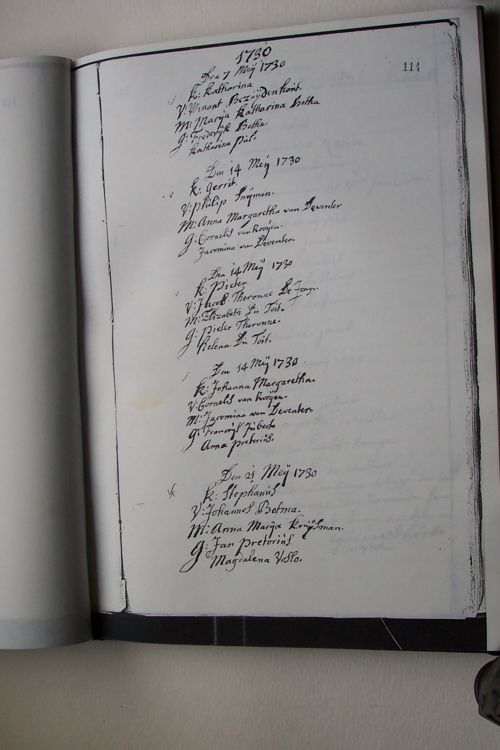 1730
111
Den 7 Meÿ 1730
K: Katharina
V: Winant Bezuÿdenhout.
M: Marya Katharina Botha
G: Frederÿk Botha.
Katharina Püs.
Den 14 Meÿ 1730
K: Gerrit
V: Philip Snÿman.
M: Anna Margaretha van Deventer
G: Cornelis van Rooÿen.
Jacomina van Deventer.
Den 14 Meÿ 1730
K: Pieter
V: Jacob Theronne De Jonge.
M: Elizabeth Du Toit.
G: Pieter Theronne.
Helena Du Toit.
Den 14 Meÿ 1730
K: Johanna Margaretha.
V: Cornelis van Rooÿen.
M: Jacomina van Deventer.
G: Francoÿs Jübert
Anna Pretoriüs.
Den 21 Meÿ 1730
K: Stephanüs
V: Johannes Botma.
M: Anna Marya Kruÿsman.
G: Jan Pretoriüs
Magdalena Voslo.